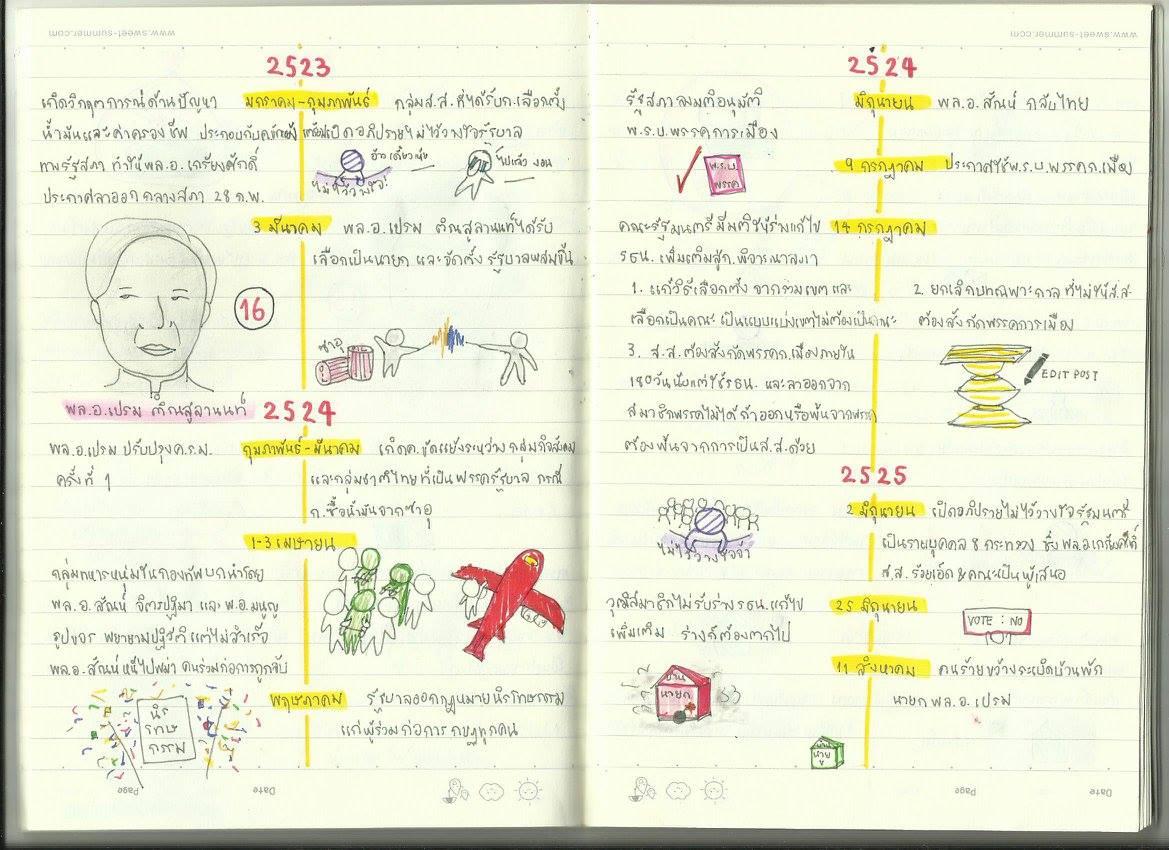 www.sweet-summer.com
2523
เกิดวิกฤตการณ์ด้านปัญหา
น้ำมันและค่าครองชีพ ประกอบกับ
ทางรัฐสภา ทำให้พล.อ.เกรียงศักดิ์
ประกาศลาออก กลางสภา 28 ก.พ.
มกราคม-กุมภาพันธ์ กลุ่มส.ส. ที่ได้รับก.เลือกตั้ง
เปิดอภิปรายไม่ไว้วางใจรัฐบาล
ไม่ไว้วางใจ!
ไปแล้ว
3 มีนาคม พล.อ.เปรม ติณสูลานนท์ได้รับ
เลือกเป็นนายก และจัดตั้ง รัฐบาลผสมขึ้น
16
ซาอุ
พล.อ.เปรม ติณสูลานนท์
2524
พล.อ.เปรม ปรับปรุงค.ร.ม.
ครั้งที่ 1
กุมภาพันธ์-มีนาคม เกิดค.ขัดแย้งระหว่าง กลุ่มกิจสังคม
และกลุ่มชาติไทย ที่เป็นพรรครัฐบาล กรณี
ก.ซื้อน้ำมันจากซาอุ
1-3 เมษายน
กลุ่มทหารหนุ่มในกองทัพบกนำโดย
พล.อ.สัณห์ จิตรปฏิมา และ พ.อ.มนูญ
รูปขจร พยายามปฏิวัติ แต่ไม่สำเร็จ
พล.อ.สัณห์หนีไปพม่า คนร่วมก่อการถูกจับ
พฤษภาคม รัฐบาลออกกฎหมายนิรโทษกรรม
แก่ผู้ร่วมก่อการ กบฏทุกคน
นิร
โทษ
กรรม
Date
Page
www.sweet-summer.com
2524
รัฐสภาลงมติอนุมัติ
พ.ร.บ.พรรคการเมือง
มิถุนายน พล.อ.สัณห์ กลับไทย
พ.ร.บ.
พรรค
9 กรกฎาคม ประกาศใช้พ.ร.บ.พรรคก.เมือง
คณะรัฐมนตรี มีมติให้ร่างแก้ไข 14 กรกฎาคม
รธน. เพิ่มเติมสู่ก.พิจารณาสภา
1. แก้วิธีเลือกตั้ง จากรวมเขต และ
เลือกเป็นคณะ เป็นแบบแบ่งเขตไม่ต้องเป็นคณะ
2. ยกเลิกบทเฉพาะกาล ที่ไม่ให้ส.ส.
ต้องสังกัดพรรคการเมือง
3. ส.ส.ต้องสังกัดพรรคก.เมืองภายใน
180วันนับแต่ใช้รธน. และลาออกจาก
สมาชิกพรรคไม่ได้ ถ้าออกหรือพ้นจากพรรค
ต้องพ้นจากการเป็นส.ส.ด้วย
EDIT POST
2525
2 มิถุนายน เปิดอภิปรายไม่ไว้วางใจรัฐมนตรี
เป็นรายบุคคล 8 กระทรวง ซึ่ง พล.อ.เกรียงศักดิ์
ส.ส. ร้อยเอ็ด & คณะเป็นผู้เสนอ
ไม่ไว้วางใจจ้า
วุฒิสมาชิกไม่รับร่างรธน.แก้ไข
เพิ่มเติม ร่างก็ต้องตกไป
25 มิถุนายน
VOTE : NO
11 สิงหาคม คนร้ายขว้างระเบิดบ้านพัก
นายก พล.อ. เปรม
บ้าน
นายก
บ้าน
Date
Page